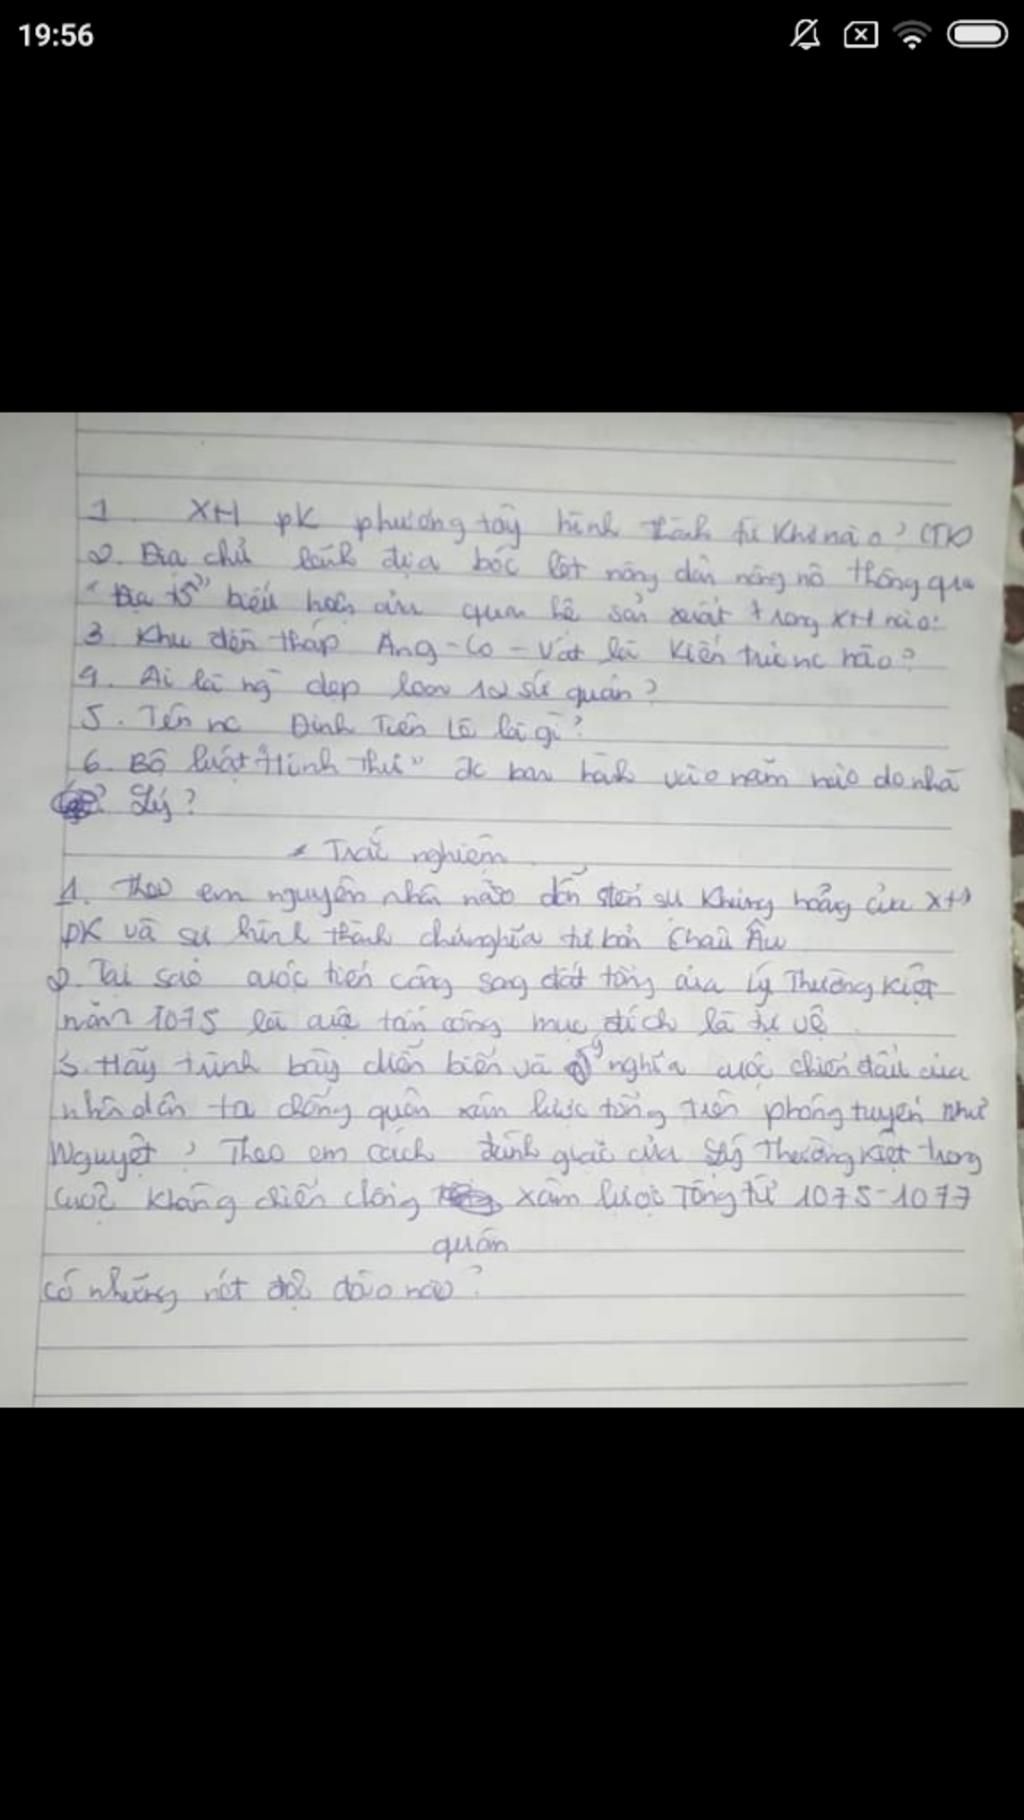 19:56
1. XH pk phương tây hình thành từ khi nào? (TK)
2. Địa chủ lãnh địa bóc lột nông dân nông nô thông qua
"Địa tô" biểu hiện của quan hệ sản xuất trong XH nào?
3. Khu đền tháp Ăng-Co-Vát là kiến trúc nc nào?
4. Ai là ng dẹp loạn 12 sứ quân?
5. Tên nc Đinh Tiền Lê là gì?
6. Bộ luật "Hình thư" đc ban hành vào năm nào do nhà
Lý?
Trắc nghiệm
1. Theo em nguyên nhân nào dẫn đến sự khủng hoảng của XH
pk và sự hình thành chủ nghĩa tư bản Châu Âu
2. Tại sao cuộc tiến công sang đất tống của Lý Thường Kiệt
năm 1075 là cuộc tấn công mục đích là tự vệ
3. Hãy trình bày diễn biến và ý nghĩa cuộc chiến đấu của
nhân dân ta chống quân xâm lược tống trên phòng tuyến như
Nguyệt? Theo em cách đánh giặc của Lý Thường Kiệt trong
cuộc kháng chiến chống xâm lược Tống từ 1075-1077
quân
có những nét độc đáo nào?